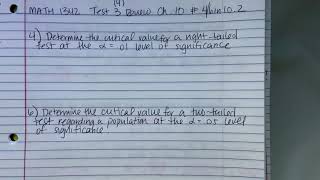 (4)
MATH 1342 Test 3 Review Ch. 10 # 4/6 in 10.2
4) Determine the critical value for a right-tailed
test at the α = .01 level of significance
6) Determine the critical value for a two-tailed
test regarding a population at the α = .05 level
of significance.